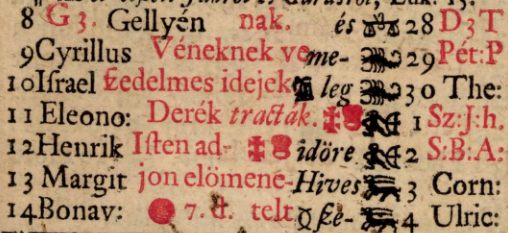 8 G 3. Gellyén nak. és 28 D3T
9 Cyrillus Véneknek ve me- 29 Pét:P
10 Iſrael £edelmes idejek leg 30 The:
11 Eleono: Derék tracták. 1 Sz:J:h.
12 Henrik Iſten ad- időre 2 S:B:A:
13 Margit jon elömene- Hives 3 Corn:
14 Bonav: 7. d. telt ſze- 4 Ulric: